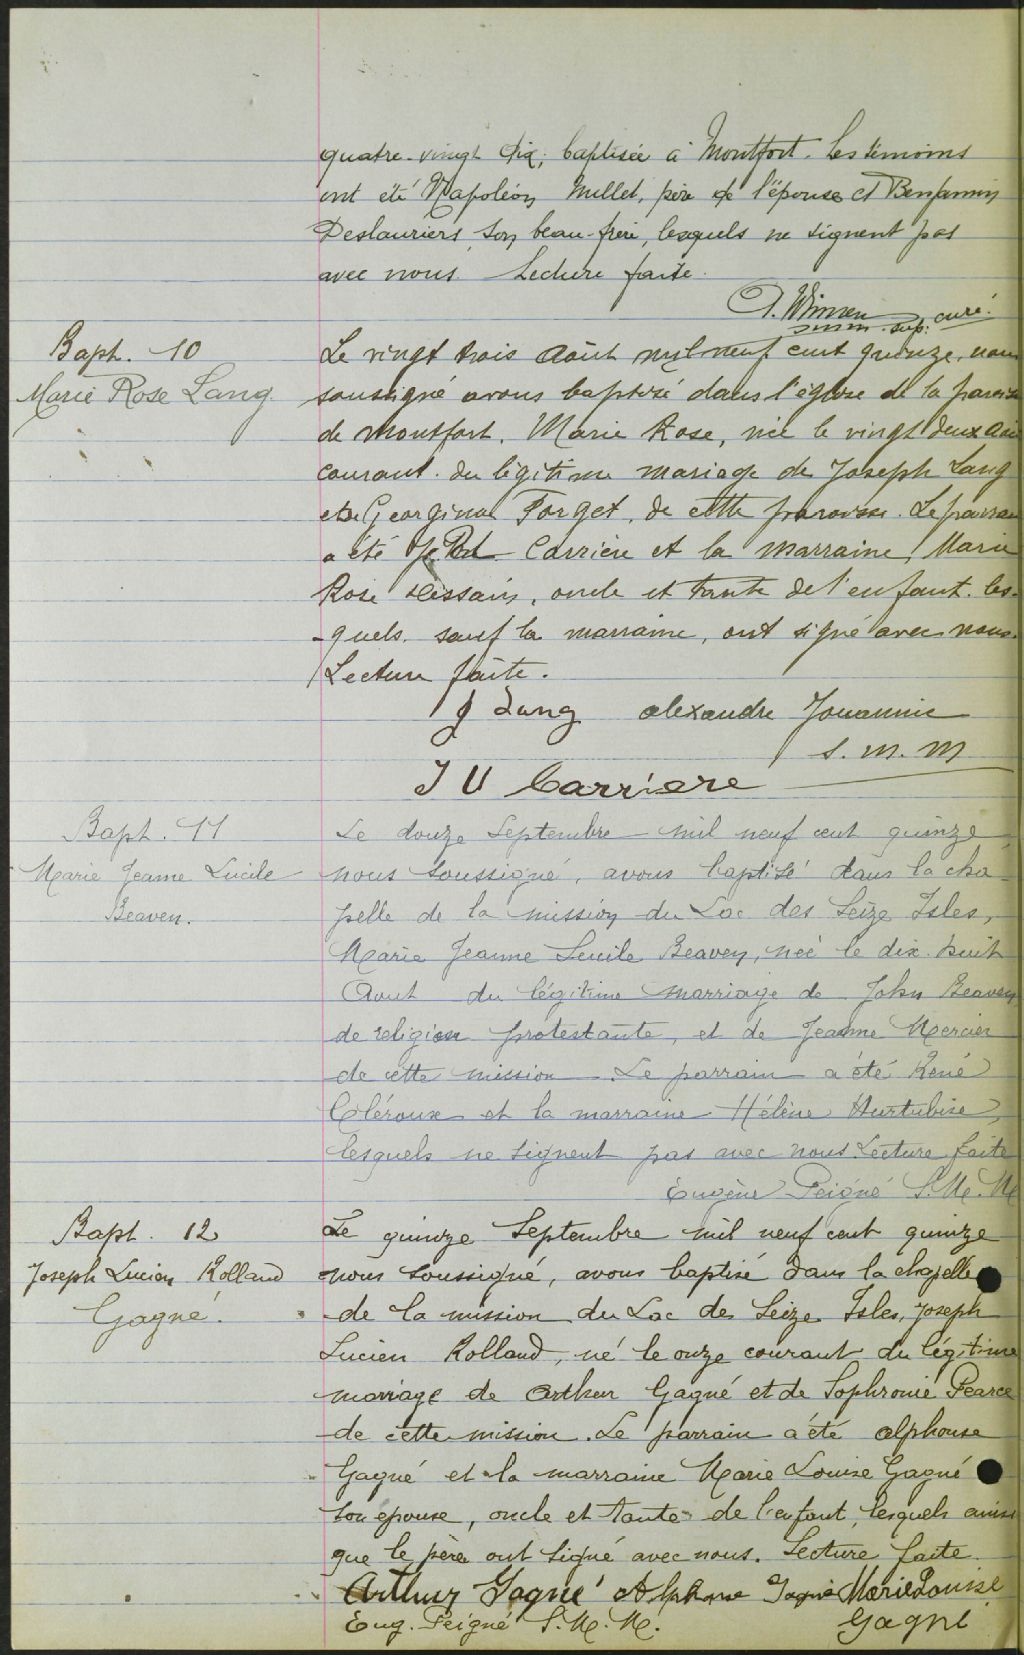 quatre-vingt dix, baptisée à Montfort. Les témoins
ont été Napoléon Millet, père de l'épouse et Benjamin
Deslauriers son beau-frère, lesquels ne signent pas
avec nous. Lecture faite.
sup. curé.
Bapt. 10
Marie Rose Lang.
Le vingt trois Août mil neuf cent quinze, nous
soussigné avons baptisé dans l'église de la paroisse
de Montfort, Marie Rose, née le vingt deux Août
courant du légitime mariage de Joseph Lang
et de Georgina Forget, de cette paroisse. Le parrain
a été Carrière et la marraine, Marie
Rose, oncle et tante de l'enfant. les-
-quels, sauf la marraine, ont signé avec nous.
Lecture faite.
J Lang alexandre Jouannic
s. m. m
J U Carriere
Bapt. 11
Marie Jeanne Lucile
Beaven.
Le douze Septembre mil neuf cent quinze
nous soussigné, avons baptisé dans la cha-
pelle de la mission du Lac des Seize Isles,
Marie Jeanne Lucile Beaven, née le dix-huit
Aout du légitime marriage de John Beaven
de religion protestante, et de Jeanne Mercier
de cette mission. Le parrain a été René
Cléroux et la marraine Hélène Hurtubise,
lesquels ne signent pas avec nous. Lecture faite
Eugène Peigné S.M.M
Bapt. 12
Joseph Lucien Rolland
Gagné.
Le quinze Septembre mil neuf cent quinze
nous soussigné, avons baptisé dans la chapelle
de la mission du Lac des Seize Isles, Joseph
Lucien Rolland, né le onze courant du légitime
mariage de Arthur Gagné et de Sophronie Pearce
de cette mission. Le parrain a été alphonse
Gagné et la marraine Marie Louise Gagné
son épouse, oncle et tante de l'enfant, lesquels ainsi
que le père ont signé avec nous. Lecture faite.
Arthur Gagné Alphonse Gagné Marie Louise
Eug. Peigné S.M.M. Gagné